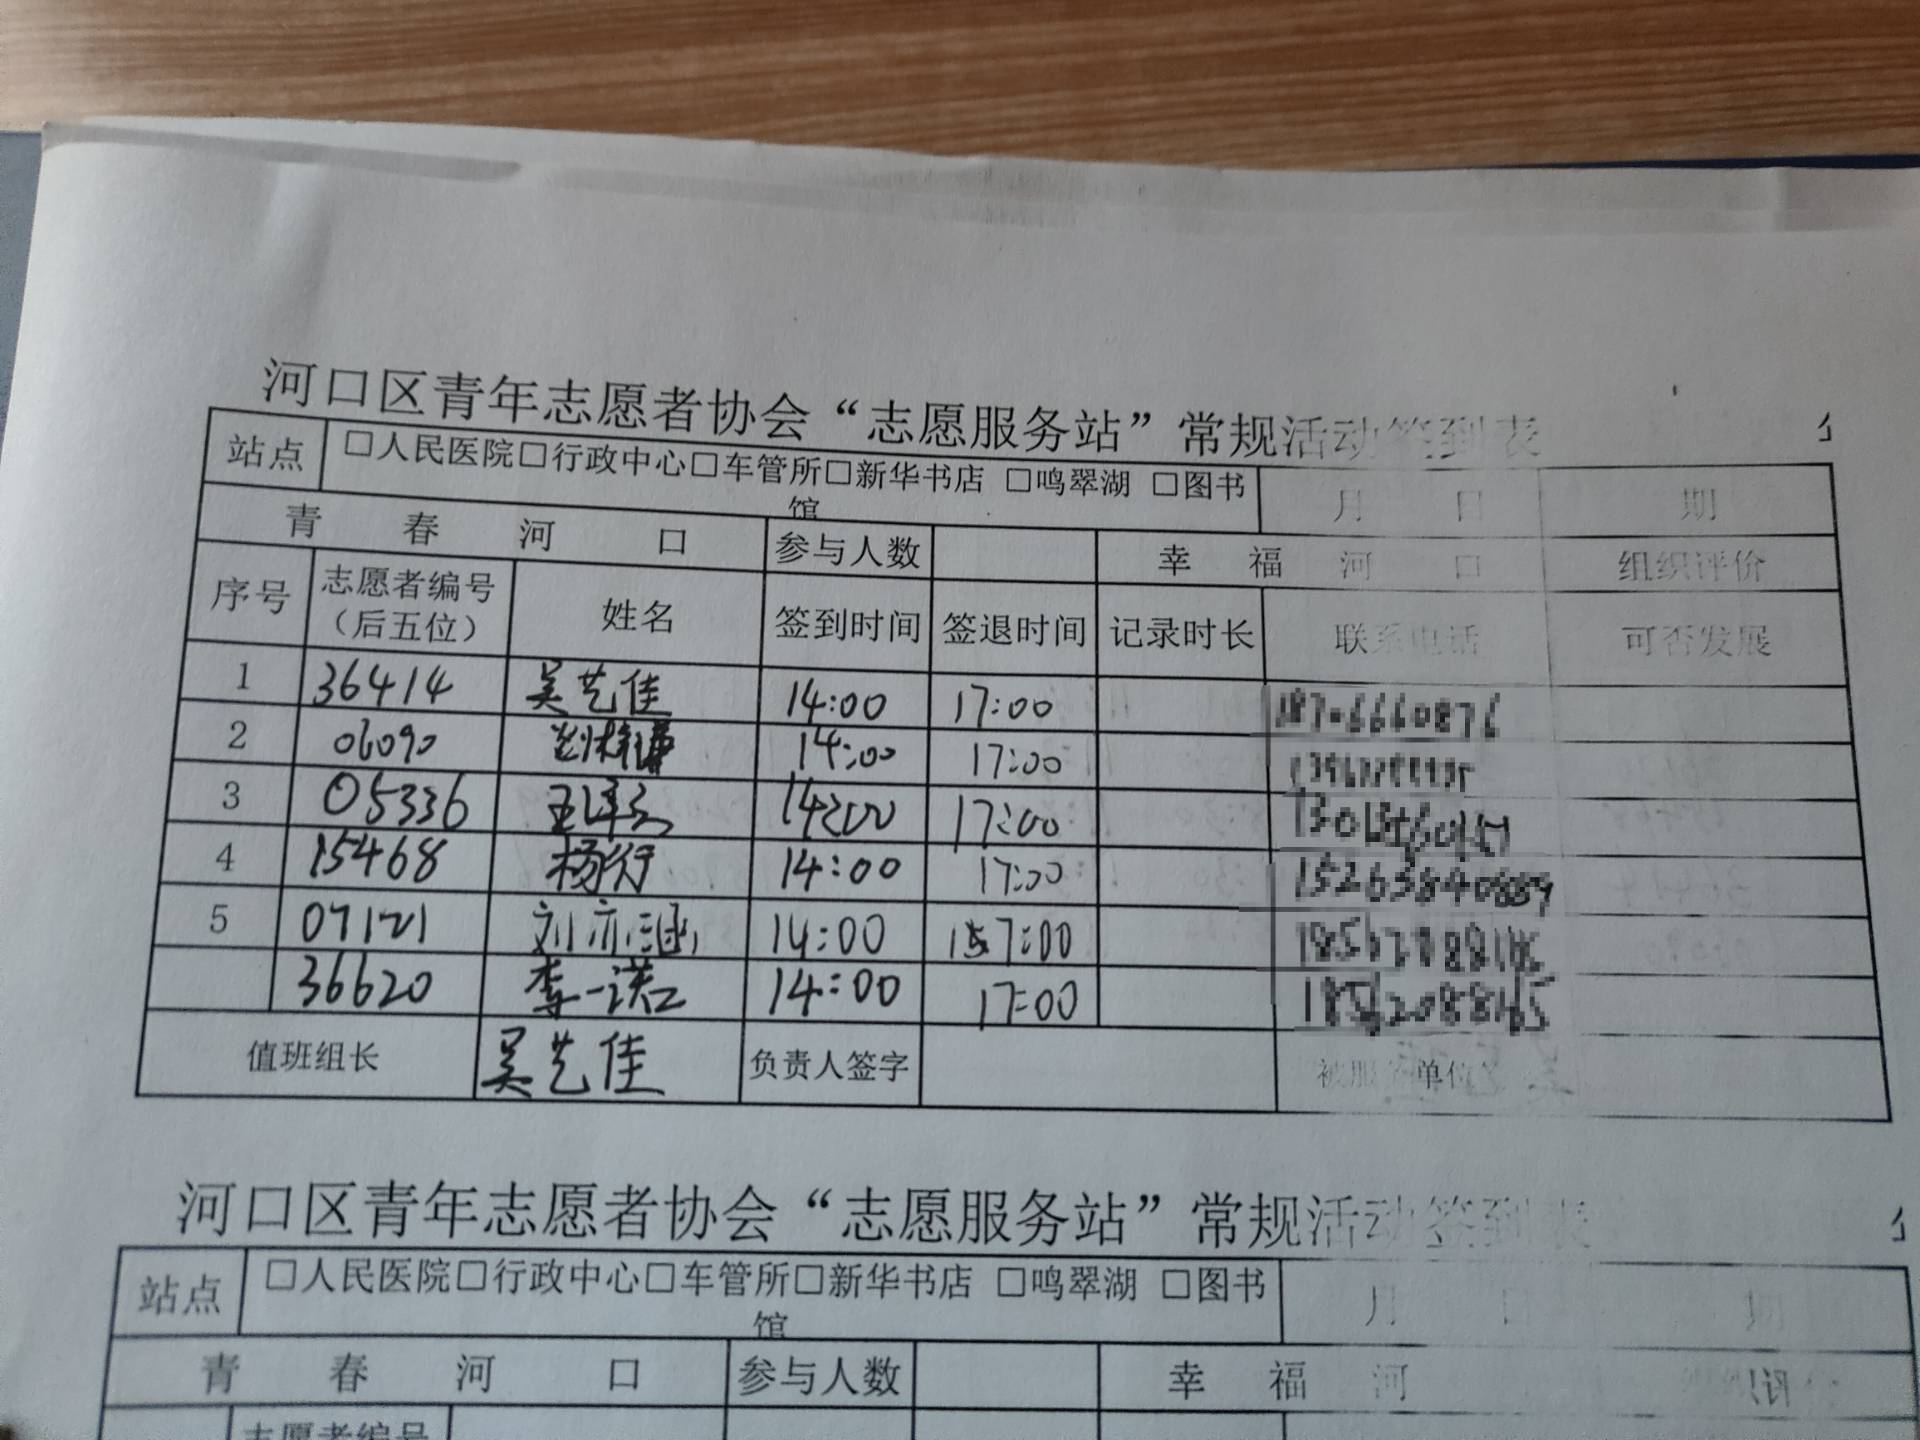 河口区青年志愿者协会“志愿服务站”常规活动签到表
站点 □人民医院□行政中心□车管所□新华书店 □鸣翠湖 □图书馆 月 日 期
青 春 河 口 参与人数 幸 福 河 口 组织评价
序号 志愿者编号（后五位） 姓名 签到时间 签退时间 记录时长 联系电话 可否发展
1 36414 吴艺佳 14:00 17:00
2 06090 14:00 17:00
3 05336 14:00 17:00
4 15468 杨行 14:00 17:00 15263840889
5 07121 刘亦涵 14:00 17:00
36620 李一诺 14:00 17:00
值班组长 吴艺佳 负责人签字 被服务单位
河口区青年志愿者协会“志愿服务站”常规活动签到表
站点 □人民医院□行政中心□车管所□新华书店 □鸣翠湖 □图书馆 月 日 期
青 春 河 口 参与人数 幸 福 河
志愿者编号